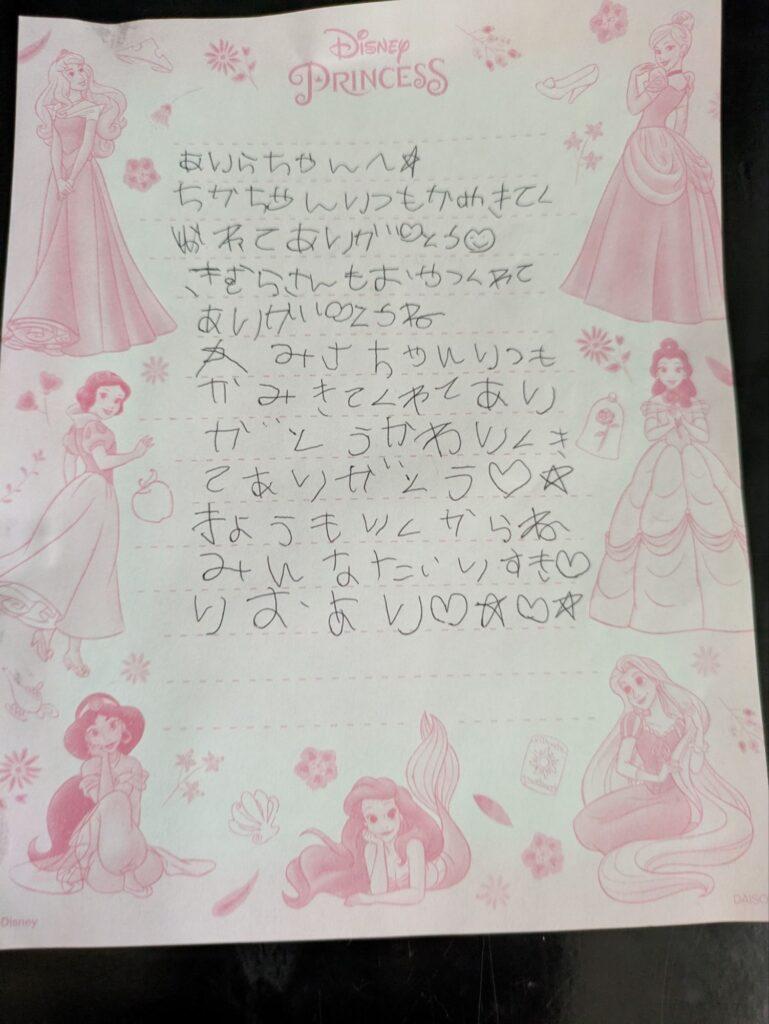 Disney
PRINCESS
あいらちゃんへ☆
ちかちゃんいつもかめきてく
れてありが♡とう☺
きむらさんもおやつくれて
ありが♡とうね
みさちゃんいつも
かみきてくれてあり
がとうかわいくき
てありがとう♡☆
きょうもいくからね
みんなだいすき♡
りおあり♡☆♡☆
Disney
DAISO